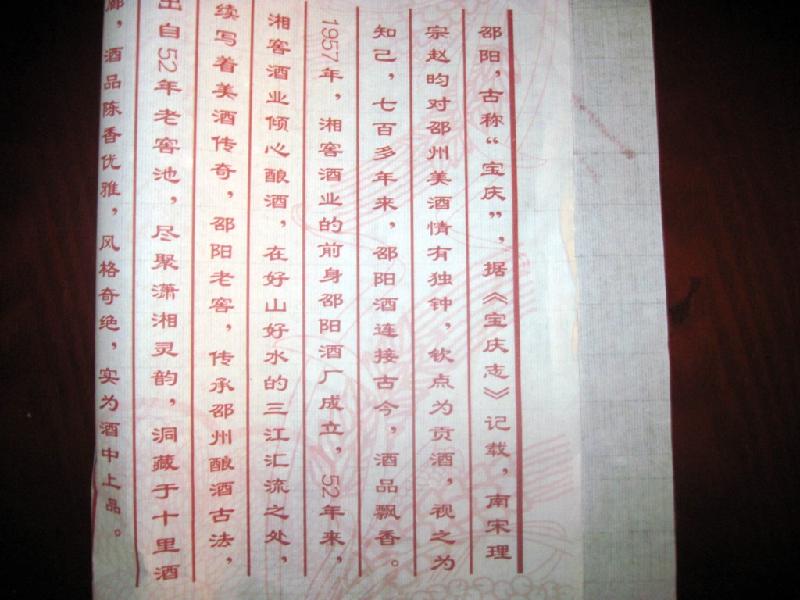 邵阳，古称“宝庆”，据《宝庆志》记载，南宋理
宗赵昀对邵州美酒情有独钟，钦点为贡酒，视之为
知己，七百多年来，邵阳酒连接古今，酒品飘香。
1957年，湘窖酒业的前身邵阳酒厂成立，52年来，
湘窖酒业倾心酿酒，在好山好水的三江汇流之处，
续写着美酒传奇，邵阳老窖，传承邵州酿酒古法，
出自52年老窖池，尽聚潇湘灵韵，洞藏于十里酒
廊，酒品陈香优雅，风格奇绝，实为酒中上品。